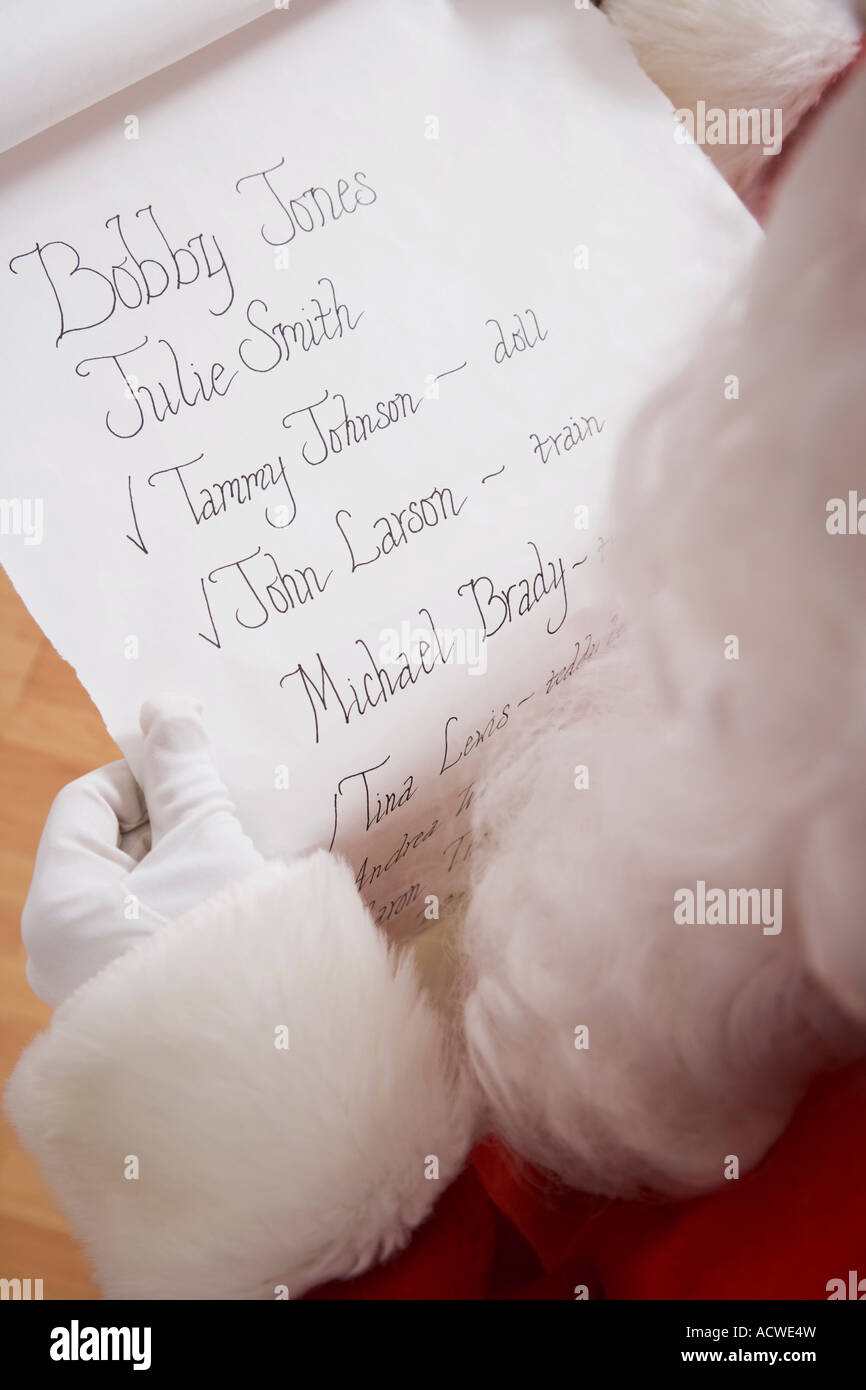 Bobby Jones
Julie Smith
✓ Tammy Johnson ~ doll
✓ John Larson ~ train
Michael Brady ~
✓ Tina Lewis ~ teddy
Andrea
alamy
Image ID: ACWE4W
www.alamy.com